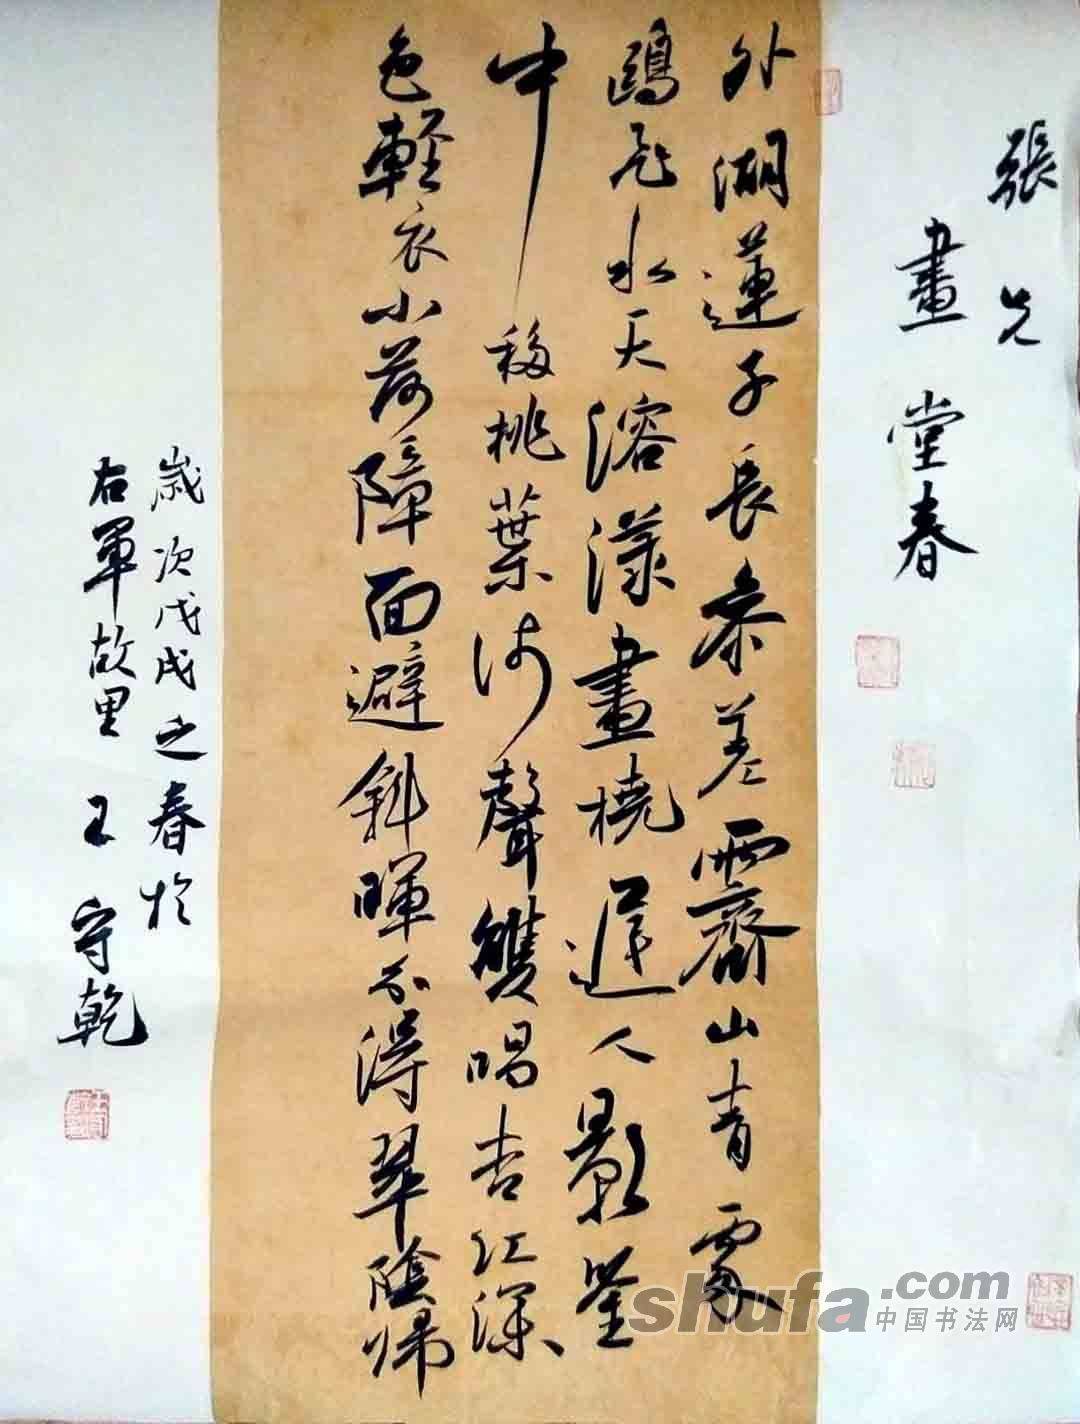 張先
畫堂春
外湖蓮子長參差霽山青處
鷗飛水天溶漾畫橈遲人影鉴
中移桃葉淺聲雙唱杏红深
色輕衣小荷障面避斜暉分得翠陰歸
歲次戊戌之春於
右軍故里 王守乾
shufa.com
中国书法网